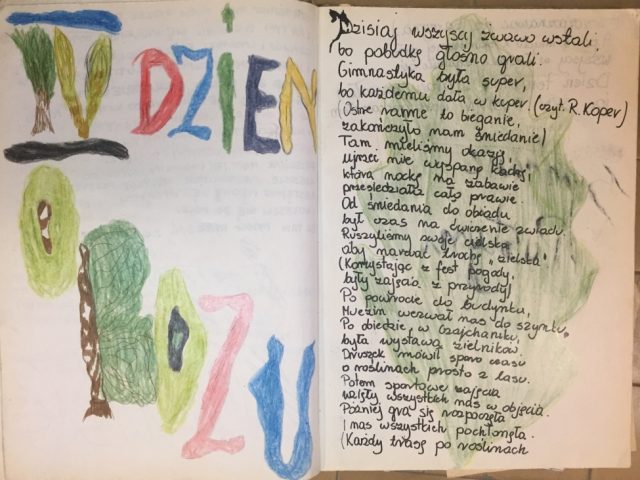 IV DZIEŃ
OBOZU
Dzisiaj wszyscy żwawo wstali,
bo pobudkę głośno grali.
Gimnastyka była super,
bo każdemu dała w kuper. (czyt. R. Koper)
(Ostre ranne to bieganie,
zakończyło nam śniadanie)
Tam mieliśmy okazję,
ujrzeć nie wyspaną kadrę,
która nockę na zabawie
przesiedziała całą prawie.
Od śniadania do obiadu
był czas na ćwiczenie zwiadu.
Ruszyliśmy swoje cielska
aby narwać trochę „zielska"
(Korzystając z fest pogody,
były zajęcia z przyrody)
Po powrocie do budynku,
Muezin wezwał nas do szynku.
Po obiedzie, w Czajchaniku,
była wystawa zielników.
Druszek mówił sporo czasu
o roślinach prosto z lasu.
Potem sportowe zajęcia
wzięły wszystkich nas w objęcia.
Później gra się rozpoczęła
i nas wszystkich pochłonęła.
(Każdy trasę po roślinach